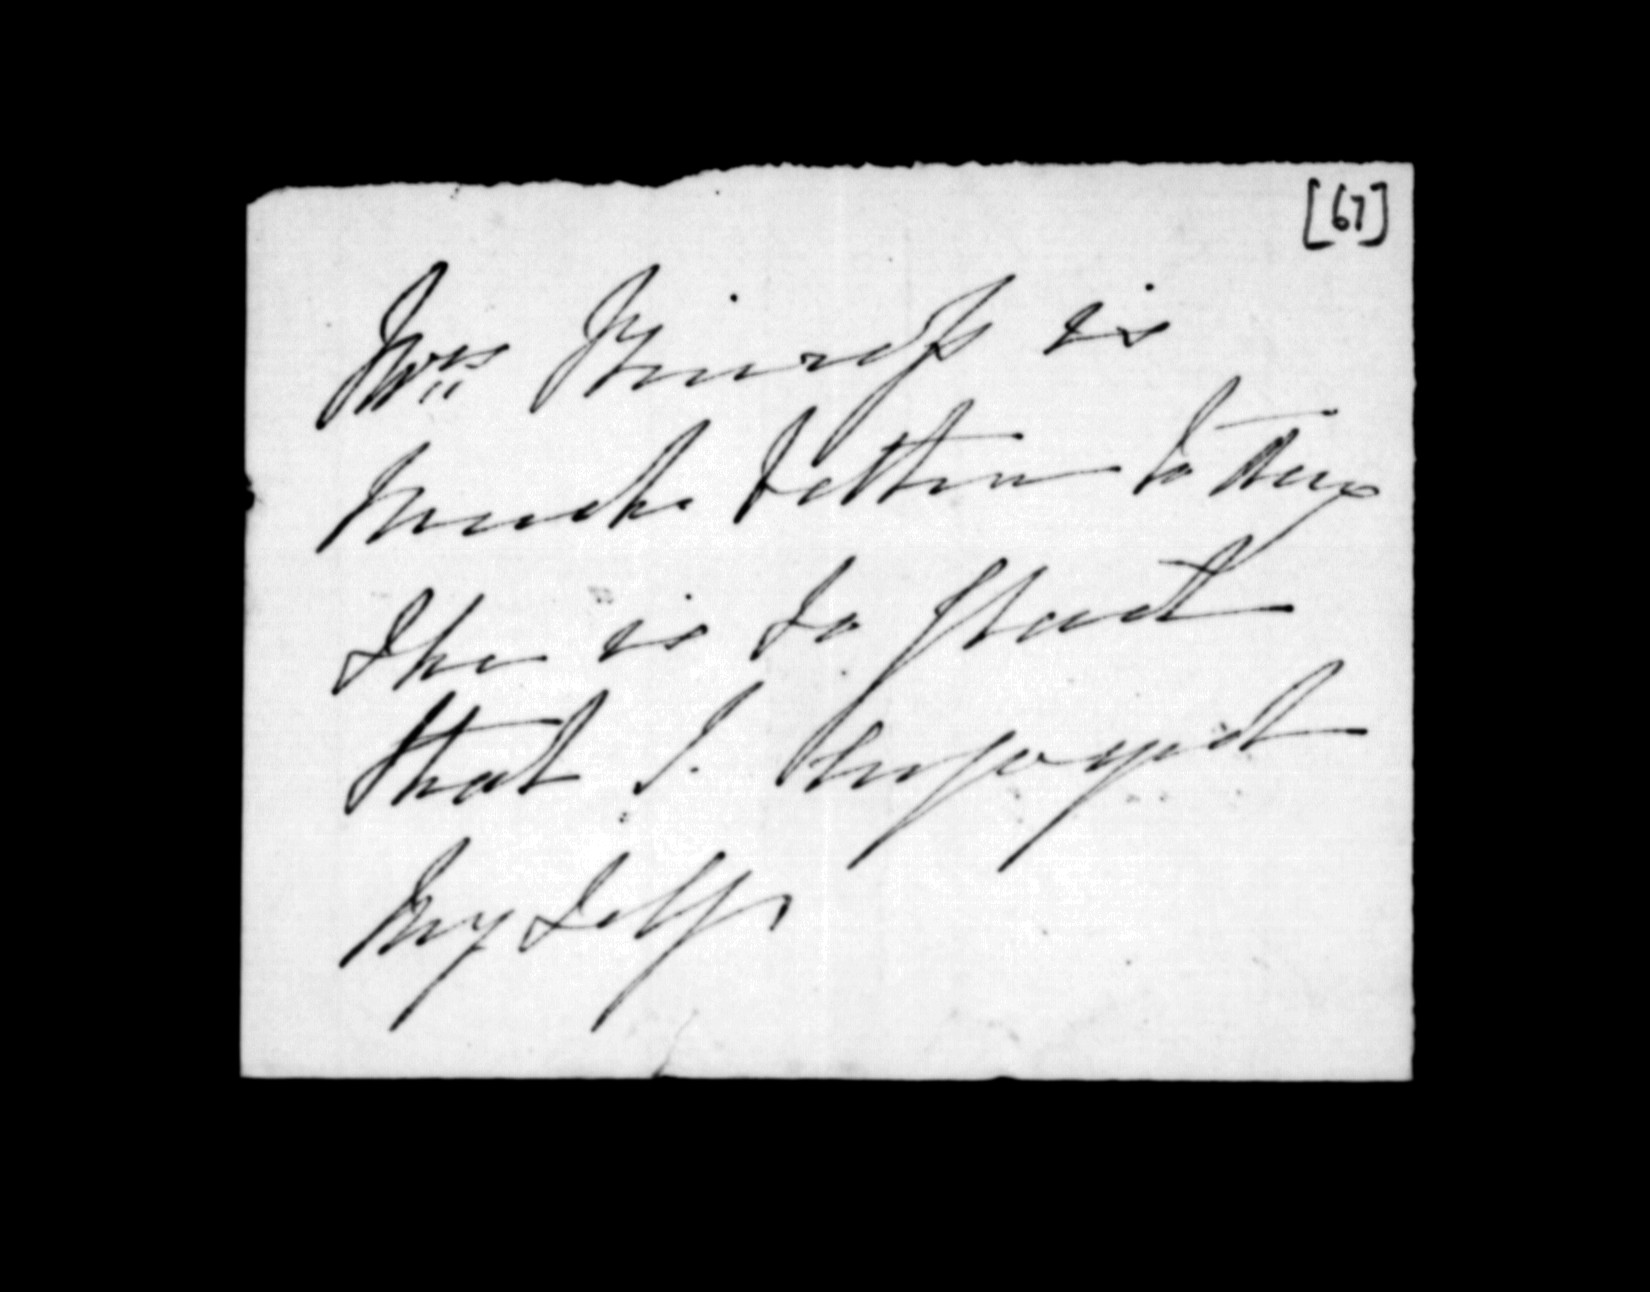 [67]
Mrs is
much better to day
She is so glad
that I enjoyed
my self